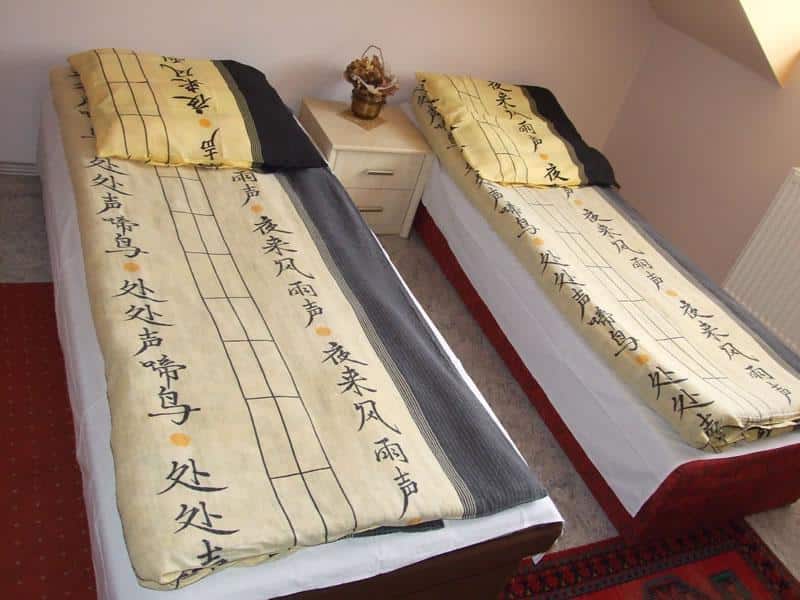 声 夜来风
雨声 夜来风雨声 夜来风雨声
处处声啼鸟 处处声啼鸟 处处声
夜来风雨声 夜
夜来风雨声 夜来风雨声
声啼鸟 处处声啼鸟 处处声